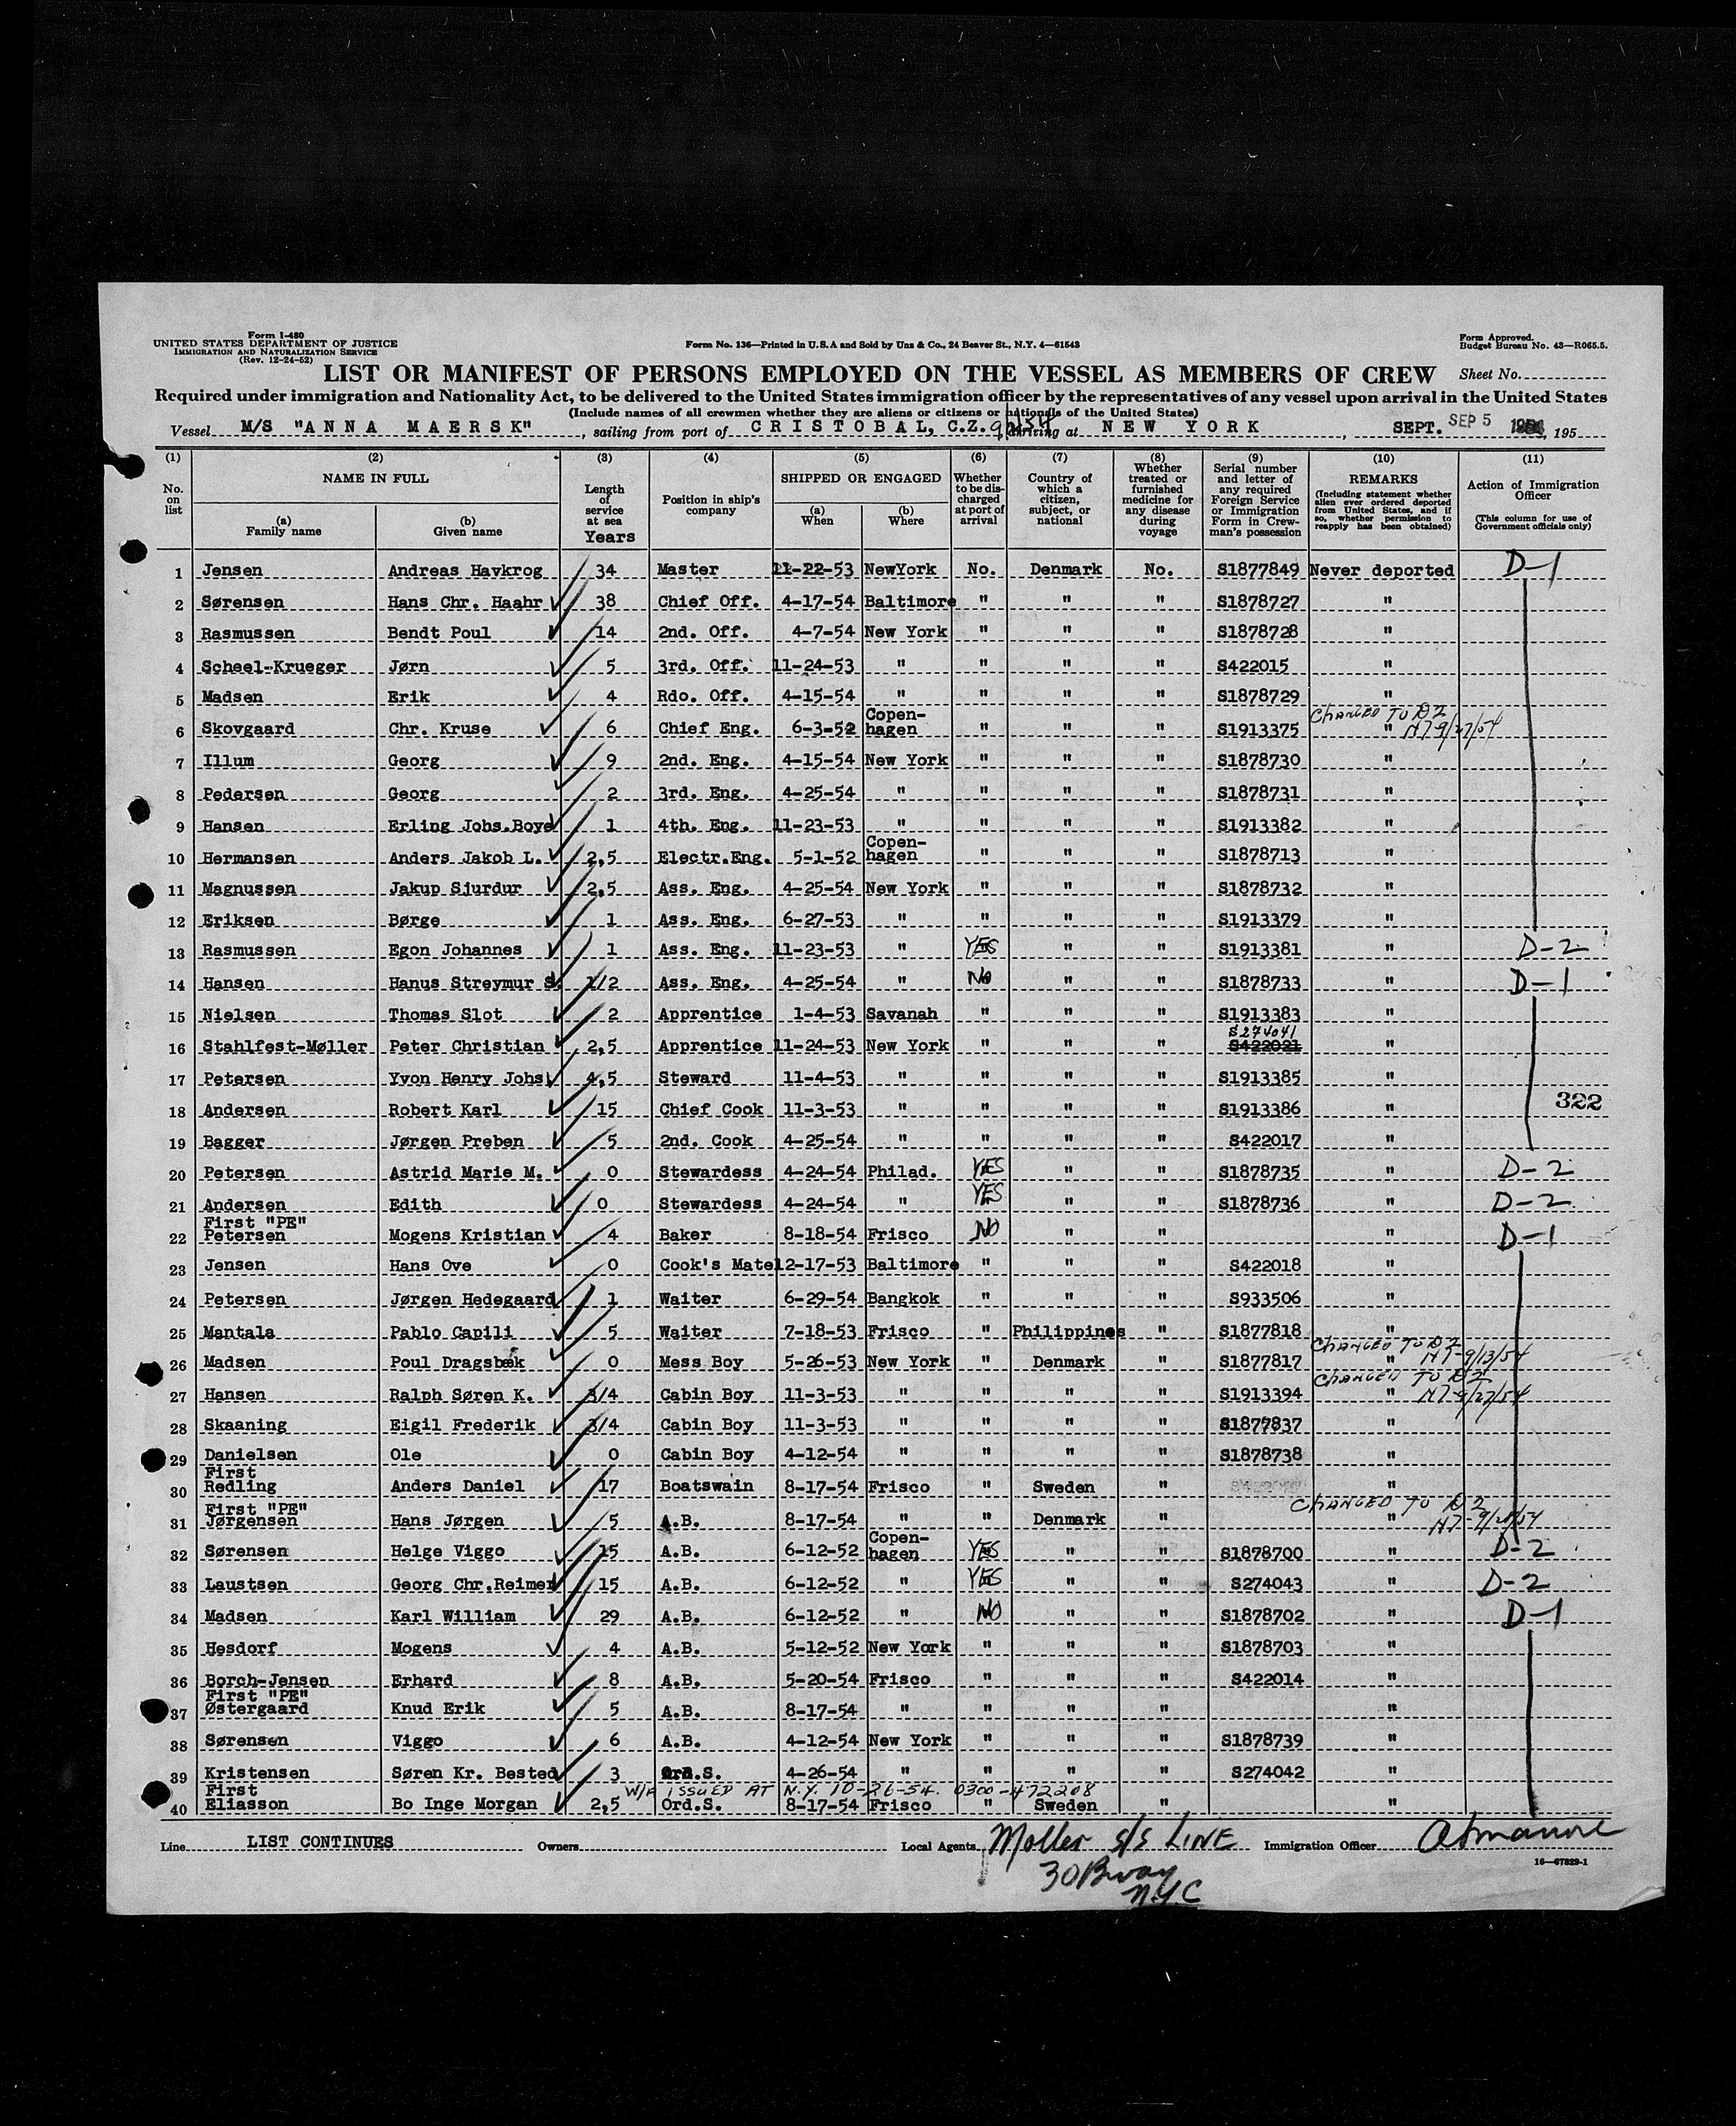 Form I-480
UNITED STATES DEPARTMENT OF JUSTICE
IMMIGRATION AND NATURALIZATION SERVICE
(Rev. 12-24-52)
Form No. 136—Printed in U.S.A and Sold by Unz & Co., 24 Beaver St., N.Y. 4—61543
Form Approved.
Budget Bureau No. 43—R065.5.
LIST OR MANIFEST OF PERSONS EMPLOYED ON THE VESSEL AS MEMBERS OF CREW Sheet No.
Required under immigration and Nationality Act, to be delivered to the United States immigration officer by the representatives of any vessel upon arrival in the United States
(Include names of all crewmen whether they are aliens or citizens or nationals of the United States)
Vessel M/S "ANNA MAERSK", sailing from port of CRISTOBAL, C.Z. arriving at NEW YORK, SEPT. SEP 5 1954, 195
(1) (2) (3) (4) (5) (6) (7) (8) (9) (10) (11)
No. on list
NAME IN FULL
(a) Family name
(b) Given name
Length of service at sea Years
Position in ship's company
SHIPPED OR ENGAGED
(a) When
(b) Where
Whether to be discharged at port of arrival
Country of which a citizen, subject, or national
Whether treated or furnished medicine for any disease during voyage
Serial number and letter of any required Foreign Service or Immigration Form in Crewman's possession
REMARKS
(Including statement whether alien ever ordered deported from United States, and if so, whether permission to reapply has been obtained)
Action of Immigration Officer
(This column for use of Government officials only)
1 Jensen Andreas Havkrog 34 Master 11-22-53 NewYork No. Denmark No. S1877849 Never deported D-1
2 Sørensen Hans Chr. Haahr 38 Chief Off. 4-17-54 Baltimore " " " S1878727 "
3 Rasmussen Bendt Poul 14 2nd. Off. 4-7-54 New York " " " S1878728 "
4 Scheel-Krueger Jørn 5 3rd. Off. 11-24-53 " " " " S422015 "
5 Madsen Erik 4 Rdo. Off. 4-15-54 " " " " S1878729 "
CHANGED TO D2
6 Skovgaard Chr. Kruse 6 Chief Eng. 6-3-52 Copenhagen " " " S1913375 " 9/27/54
7 Illum Georg 9 2nd. Eng. 4-15-54 New York " " " S1878730 "
8 Pedersen Georg 2 3rd. Eng. 4-25-54 " " " " S1878731 "
9 Hansen Erling Johs.Boye 1 4th. Eng. 11-23-53 " " " " S1913382 "
10 Hermansen Anders Jakob L. 2,5 Electr.Eng. 5-1-52 Copenhagen " " " S1878713 "
11 Magnussen Jakup Sjurdur 2,5 Ass. Eng. 4-25-54 New York " " " S1878732 "
12 Eriksen Børge 1 Ass. Eng. 6-27-53 " " " " S1913379 "
13 Rasmussen Egon Johannes 1 Ass. Eng. 11-23-53 " YES " " S1913381 " D-2
14 Hansen Hanus Streymur S. 1/2 Ass. Eng. 4-25-54 " NO " " S1878733 " D-1
15 Nielsen Thomas Slot 2 Apprentice 1-4-53 Savanah " " " S1913383 "
S274041
16 Stahlfest-Møller Peter Christian 2,5 Apprentice 11-24-53 New York " " " S422021 "
17 Petersen Yvon Henry Johs. 4,5 Steward 11-4-53 " " " " S1913385 "
18 Andersen Robert Karl 15 Chief Cook 11-3-53 " " " " S1913386 " 322
19 Bagger Jørgen Preben 5 2nd. Cook 4-25-54 " " " " S422017 "
20 Petersen Astrid Marie M. 0 Stewardess 4-24-54 Philad. YES " " S1878735 " D-2
21 Andersen Edith 0 Stewardess 4-24-54 " YES " " S1878736 " D-2
First "PE"
22 Petersen Mogens Kristian 4 Baker 8-18-54 Frisco NO " " " D-1
23 Jensen Hans Ove 0 Cook's Mate 12-17-53 Baltimore " " " S422018 "
24 Petersen Jørgen Hedegaard 1 Waiter 6-29-54 Bangkok " " " S933506 "
25 Mantala Pablo Capili 5 Waiter 7-18-53 Frisco " Philippines " S1877818 "
CHANGED TO D2
26 Madsen Poul Dragsbæk 0 Mess Boy 5-26-53 New York " Denmark " S1877817 " 9/13/54
CHANGED TO D2
27 Hansen Ralph Søren K. 3/4 Cabin Boy 11-3-53 " " " " S1913394 " 9/27/54
28 Skaaning Eigil Frederik 3/4 Cabin Boy 11-3-53 " " " " S1877837 "
29 Danielsen Ole 0 Cabin Boy 4-12-54 " " " " S1878738 "
First
30 Redling Anders Daniel 17 Boatswain 8-17-54 Frisco " Sweden " "
First "PE" CHANGED TO D2
31 Jørgensen Hans Jørgen 5 A.B. 8-17-54 " " Denmark " "
32 Sørensen Helge Viggo 15 A.B. 6-12-52 Copenhagen YES " " S1878700 " D-2
33 Laustsen Georg Chr.Reimer 15 A.B. 6-12-52 " YES " " S274043 " D-2
34 Madsen Karl William 29 A.B. 6-12-52 " NO " " S1878702 " D-1
35 Hesdorf Mogens 4 A.B. 5-12-52 New York " " " S1878703 "
36 Borch-Jensen Erhard 8 A.B. 5-20-54 Frisco " " " S422014 "
First "PE"
37 Østergaard Knud Erik 5 A.B. 8-17-54 " " " " "
38 Sørensen Viggo 6 A.B. 4-12-54 New York " " " S1878739 "
39 Kristensen Søren Kr. Bested 3 Ord.S. 4-26-54 " " " " S274042 "
First W/A ISSUED AT N.Y. 10-26-54. 0300-472208
40 Eliasson Bo Inge Morgan 2,5 Ord.S. 8-17-54 Frisco " Sweden " "
Line LIST CONTINUES Owners Local Agents Moller S/S LINE Immigration Officer
30 Bway
N.Y.C
16—67829-1